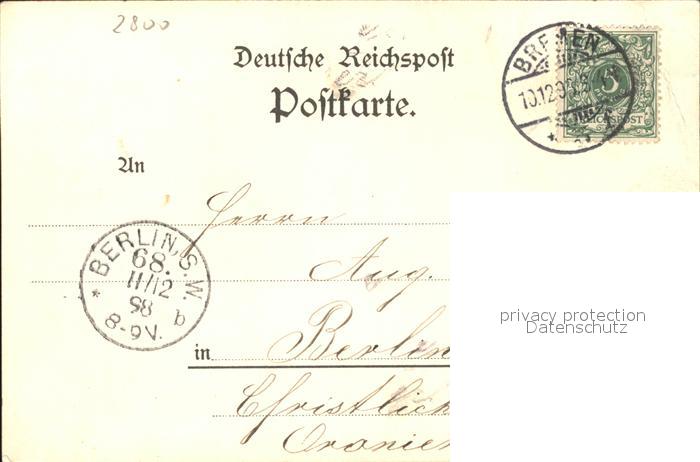 2800
Deutsche Reichspost
Postkarte.
BREMEN
10.12.98
5
REICHSPOST
An
Herrn
Aug.
BERLIN, S.W.
68.
11/12
98
8-9V.
* b
in Berlin
Christlich
Oranien
privacy protection
Datenschutz